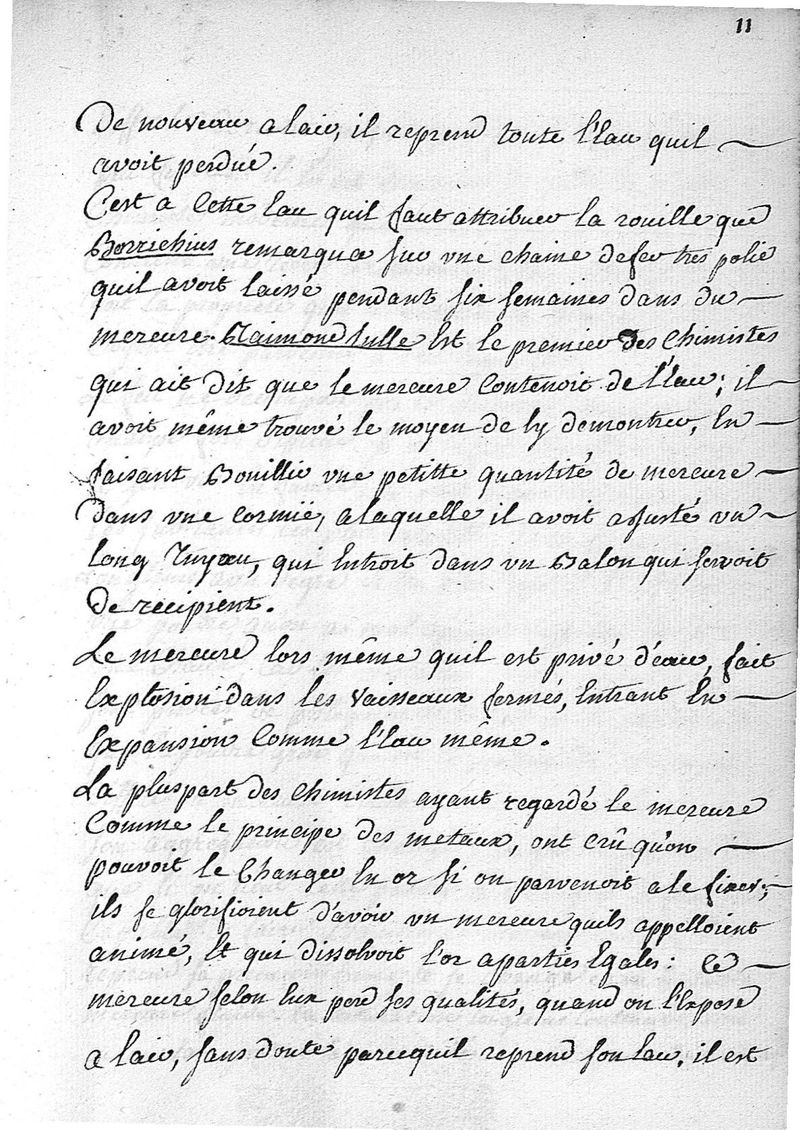 11
De nouveau a lair, il reprend toute l'Eau quil
avoit perdué.
C'est a Cette Eau quil faut attribuer la rouille que
Borrichius remarqua sur une chaine de fer tres polie
quil avoit laissé pendant six semaines dans du
mercure. Raimond Lulle Est le premier des Chimistes
qui ait dit que le mercure Contenoit de l'Eau; il
avoit même trouvé le moyen de ly demontrer, En
faisant Bouillir une petitte quantité de mercure
dans une Cornüe, a laquelle il avoit ajusté un
long Tuyau, qui Entroit dans un Balon qui servoit
de recipient.
Le mercure lors même quil est privé d'eau, fait
Explosion dans les Vaisseaux fermés, Entrant En
Expansion Comme l'Eau même.
La pluspart des Chimistes ayant regardé le mercure
Comme le principe des metaux, ont crû qu'on
pouvoit le Changer En or si on parvenoit a le fixer;
ils se glorifioient d'avoir un mercure quils appelloient
animé, Et qui dissolvoit l'or a parties Egales: Ce
mercure selon Eux perd ses qualités, quand on l'Expose
a lair, sans doute parcequil reprend son Eau, il est